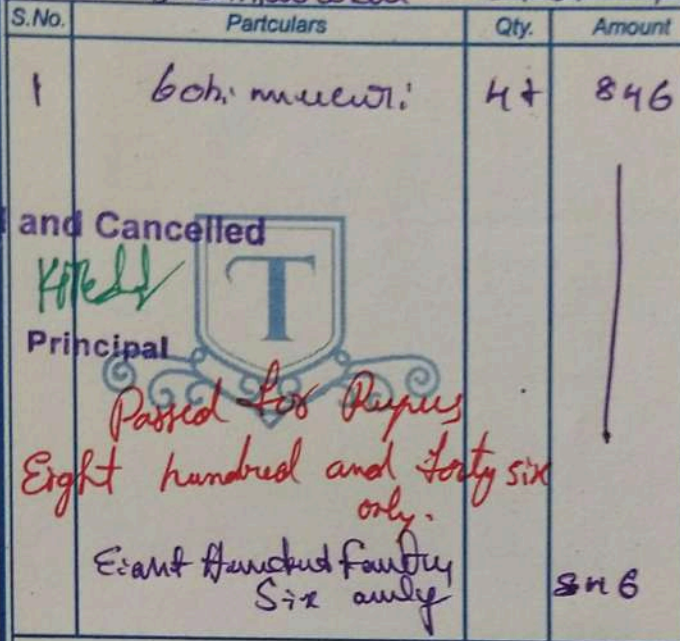 S.No. Partculars Qty. Amount
1 47 846
and Cancelled
T
Principal
Passed for Rupees
Eight hundred and forty six
only.
Eight Hundred Fourty
Six only 846